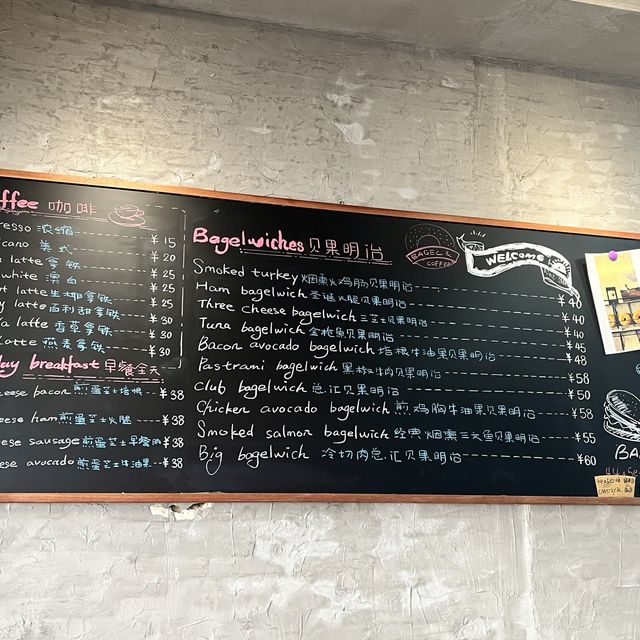 ffee 咖啡
resso 浓缩 ¥15
icano 美式 ¥20
e latte 拿铁 ¥25
white 澳白 ¥25
t latte 生椰拿铁 ¥25
y latte 百利甜拿铁 ¥30
a latte 香草拿铁 ¥30
latte 燕麦拿铁 ¥30
day breakfast 早餐全天
eese bacon 煎蛋芝士培根 ¥38
eese ham 煎蛋芝士火腿 ¥38
ese sausage 煎蛋芝士早餐肉 ¥38
ese avocado 煎蛋芝士牛油果 ¥38
Bagelwiches 贝果明治
BAGEL & COFFEE
WELCOME
Smoked turkey 烟熏火鸡肠贝果明治
Ham bagelwich 圣诞火腿贝果明治 ¥40
Three cheese bagelwich 三芝士贝果明治 ¥40
Tuna bagelwich 金枪鱼贝果明治 ¥45
Bacon avocado bagelwich 培根牛油果贝果明治 ¥48
Pastrami bagelwich 黑椒牛肉贝果明治 ¥58
Club bagelwich 总汇贝果明治 ¥50
Chicken avocado bagelwich 煎鸡胸牛油果贝果明治 ¥58
Smoked salmon bagelwich 经典烟熏三文鱼贝果明治 ¥55
Big bagelwich 冷切肉总汇贝果明治 ¥60
BA